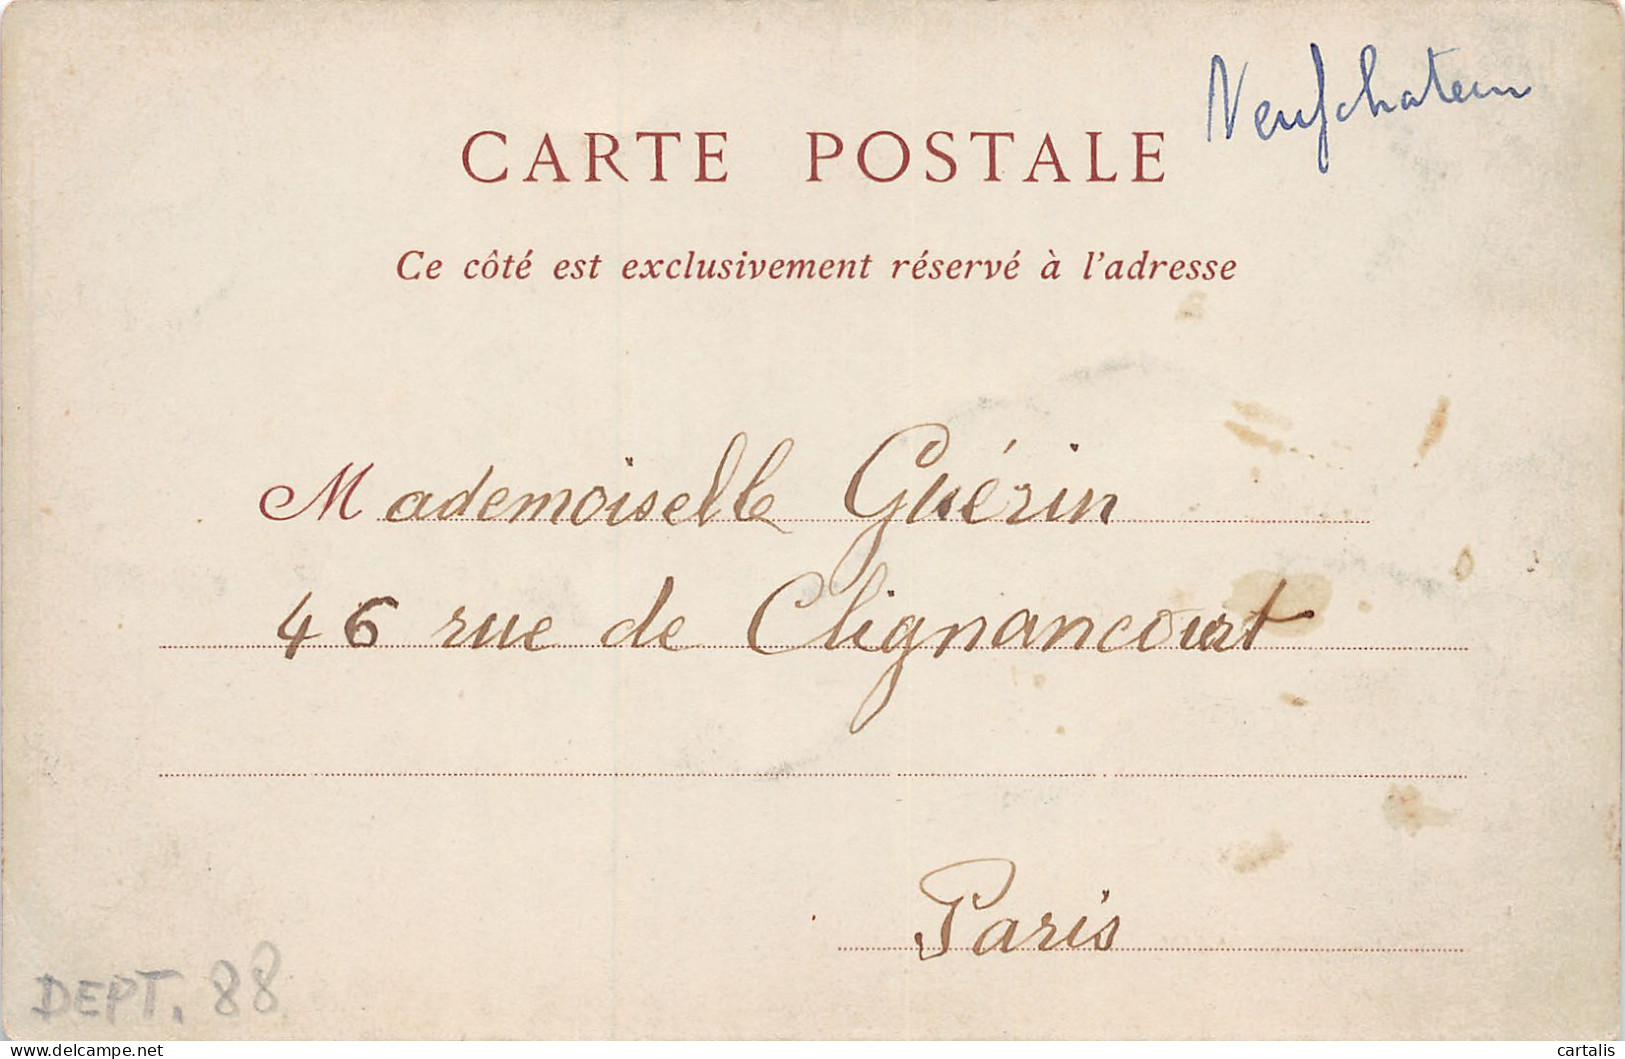 Neufchateau
CARTE POSTALE
Ce côté est exclusivement réservé à l'adresse
Mademoiselle Guérin
46 rue de Clignancourt
Paris
DEPT. 88
delcampe.net
cartalis